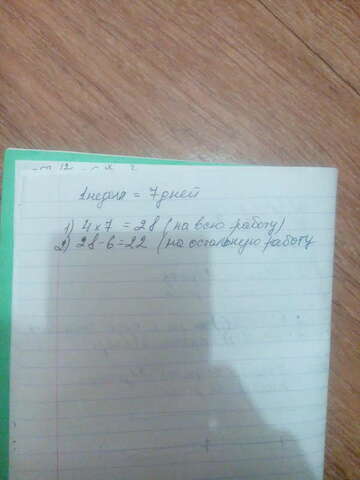 1 неделя = 7 дней
1) 4 x 7 = 28 (на всю работу)
2) 28 - 6 = 22 (на остальную работу